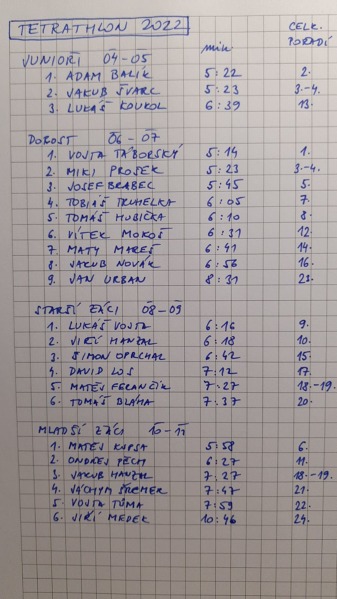 TETRATHLON 2022
min
CELK. POŘADÍ
JUNIOŘI 04-05
1. ADAM BALÍK 5:22 2.
2. JAKUB ŠVARC 5:23 3.-4.
3. LUKÁŠ KOUKOL 6:39 13.
DOROST 06-07
1. VOJTA TÁBORSKÝ 5:14 1.
2. MIKI PROŠEK 5:23 3.-4.
3. JOSEF BRABEC 5:45 5.
4. TOBIÁŠ TRUHELKA 6:05 7.
5. TOMÁŠ HUBIČKA 6:10 8.
6. VÍTEK MOKOŠ 6:31 12.
7. MATY MAREŠ 6:41 14.
8. JAKUB NOVÁK 6:56 16.
9. JAN URBAN 8:31 23.
STARŠÍ ŽÁCI 08-09
1. LUKÁŠ VOJTA 6:16 9.
2. JIŘÍ HANZAL 6:18 10.
3. ŠIMON OPRCHAL 6:42 15.
4. DAVID LOS 7:12 17.
5. MATĚJ 7:27 18.-19.
6. TOMÁŠ BLÁHA 7:37 20.
MLADŠÍ ŽÁCI 10-11
1. MATĚJ KUPSA 5:58 6.
2. ONDŘEJ PECH 6:27 11.
3. JAKUB HANZAL 7:27 18.-19.
4. JÁCHYM 7:47 21.
5. VOJTA TŮMA 7:59 22.
6. JIŘÍ MEDEK 10:46 24.